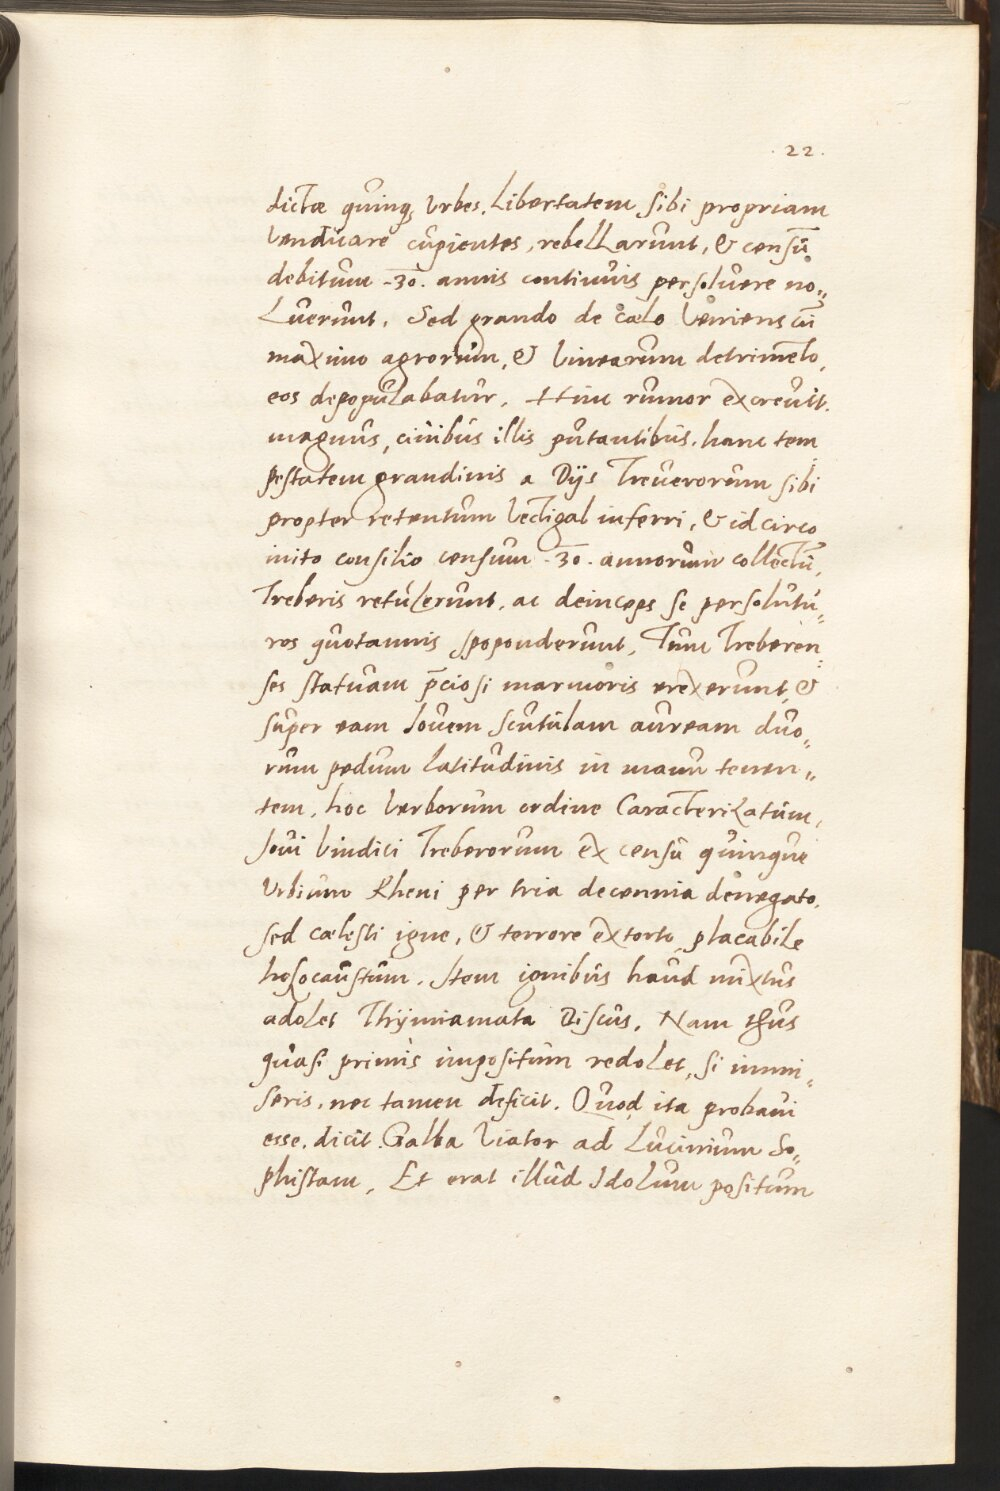 .22.
dictæ quinq, Urbes. Libertatem sibi propriam
Vendicare cupientes, rebellarunt, & censū
debitum .30. annis continuis persolvere no„
Luerunt. Sed grando de cælo Veniens cū
maximo agrorum, & Vinearum detrimēto,
eos depopulabatur. Hinc rumor excrevit.
magnus, civibus illis putantibus. hanc tem
pestatem grandinis a Dijs Treverorum sibi
propter retentum Vectigal inferri, & idcirco
inito consilio censum .30. annorum collectū,
Treberis retulerunt, ac deinceps se persolutu„
ros quotannis spoponderunt, Tum Treberen„
ses statuam p̄ciosi marmoris erexerunt, &
super eam Iovem scutulam auream duo„
rum pedum latitudinis in manu tenen„
tem, hoc Verborum ordine Caracterizatum,
Iovi Vindici Treberorum ex censu quinque
Urbium Rheni per tria decennia denegato,
sed cælesti igne, & terrore extorto, placabile
holocaustum. Item ignibus haud mixtus
adolet Thijmiamata Discus, Nam thus
quasi primis impositum redolet, si immi„
seris, nec tamen deficit. Quod ita probavi
esse, dicit Galba Viator ad Lucinium So„
phistam, Et erat illud Idolum positum